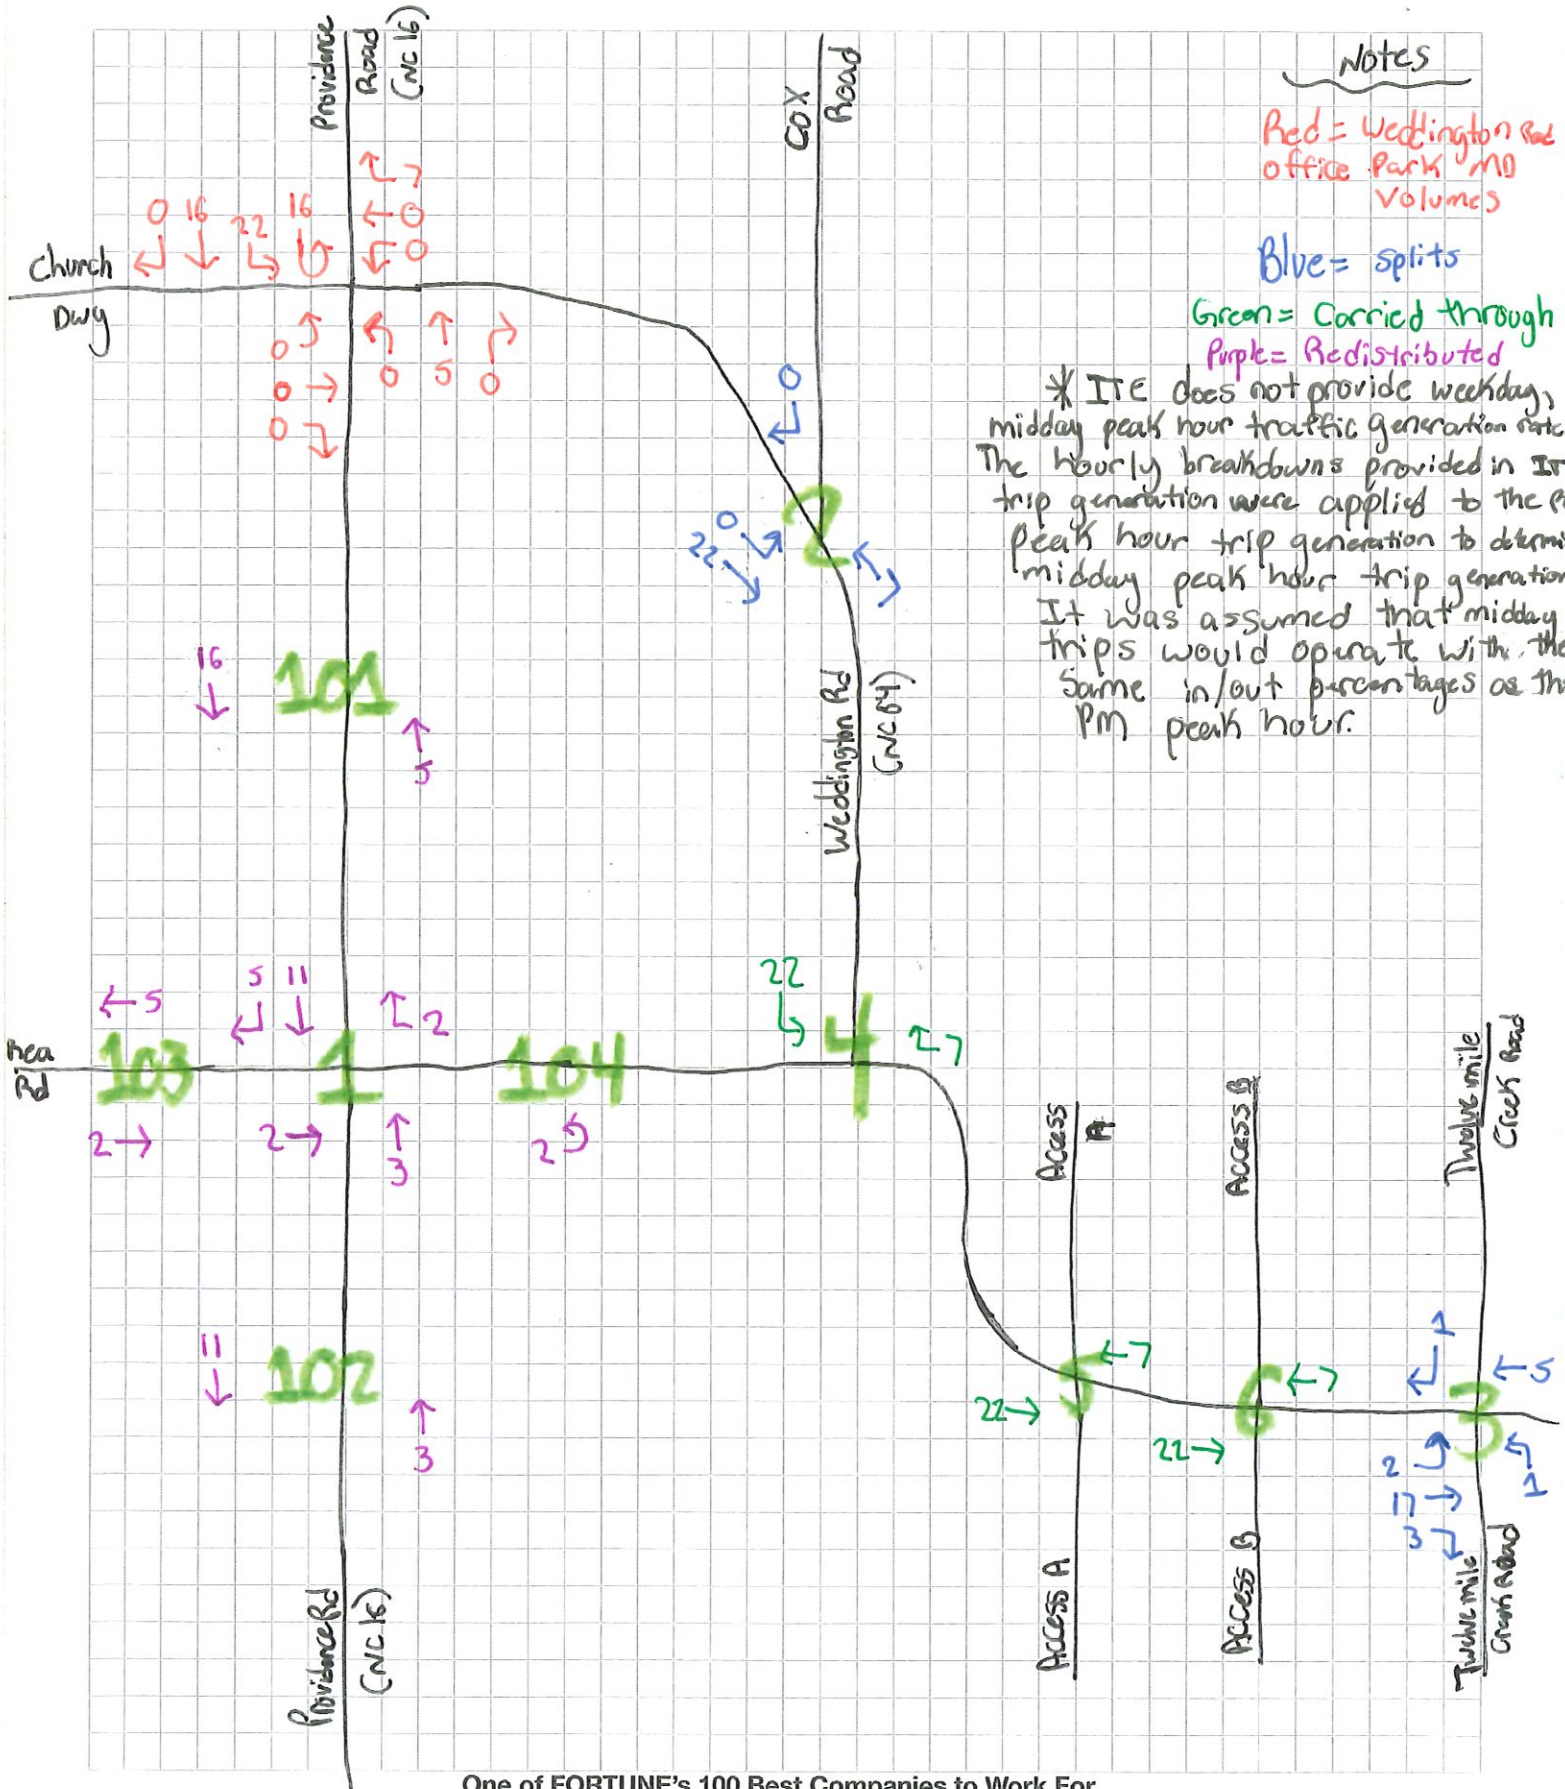 Notes
Red = Weddington Road
Office Park MD
Volumes
Blue = Splits
Green = Carried through
Purple = Redistributed
* ITE does not provide weekday,
midday peak hour traffic generation
The hourly breakdowns provided in
trip generation were applied to the
peak hour trip generation to
midday peak hour trip generation
It was assumed that midday
trips would operate with
same in/out percentages as
PM peak hour.
Providence
Road
(NC 16)
Cox
Road
7
0
0
0 16 22 16
Church
Dwy
0
0
0
0 5 0
0
2
0
22
Weddington Rd
(NC 84)
16
101
5
5
5 11
2
22
7
Rea
Rd
103
1
104
4
2
2
3
2
Access
A
Access B
Twelve mile
Creek Road
11
102
3
7
5
22
7
6
22
1
5
3
2
17
3
1
Access A
Access B
Twelve mile
Creek Road
Providence Rd
(NC 16)
One of FORTUNE's 100 Best Companies to Work For